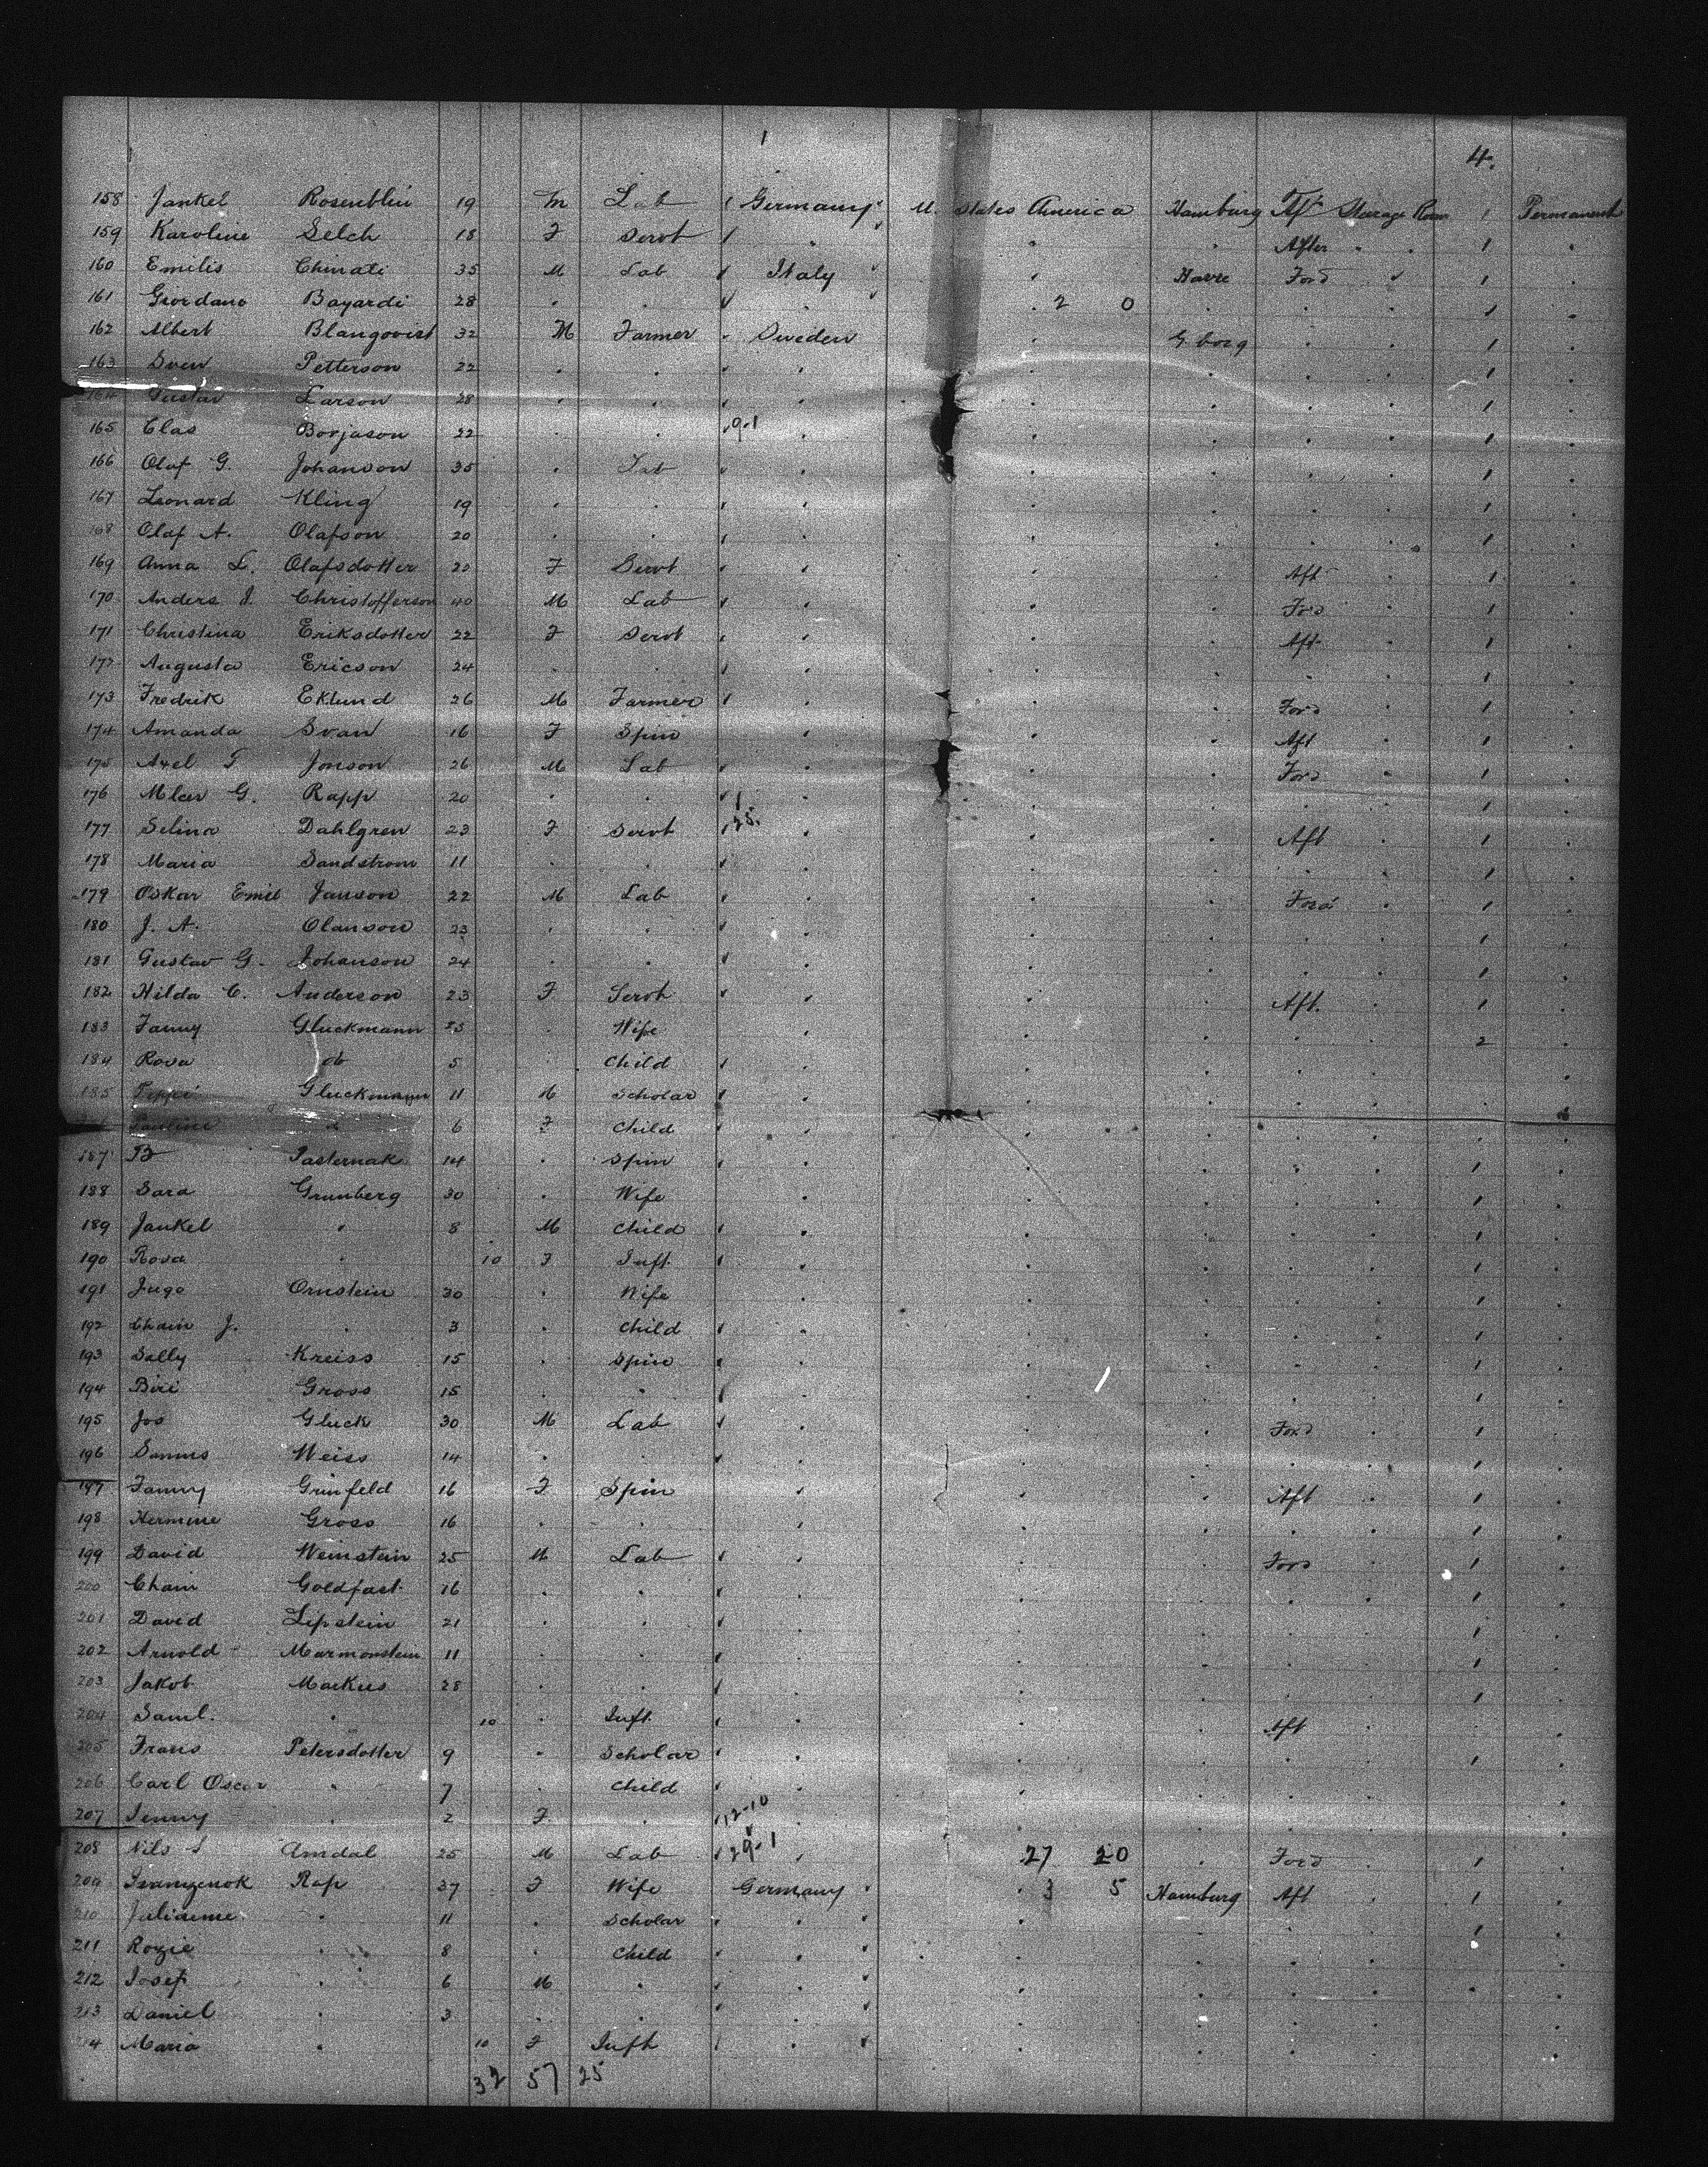 4.
158 Jankel Rosenblin 19 M Lab Germany U. States America Hamburg Aft Steerage Room 1 Permanent
159 Karoline Selch 18 F Servt " " " After " " 1 "
160 Emilis Chinati 35 M Lab Italy " Havre Ford " 1
161 Giordano Bayardi 28 " " 2 0 " " " 1 "
162 Albert Blangovist 32 M Farmer Sweden " G.borg " " 1 "
163 Sven Petterson 22 " " " " " " " 1 "
164 Gustav Larson 28 " " " " " " " 1 "
165 Clas Borjason 22 " " 9-1 " " " " " 1 "
166 Olaf G. Johanson 35 " Lab " " " " " 1 "
167 Leonard Kling 19 " " " " " " " 1 "
168 Olaf A. Olafson 20 " " " " " " " 1 "
169 Anna L. Olafsdotter 20 F Servt " " " Aft " 1 "
170 Anders J. Christofferson 40 M Lab " " " Ford " 1 "
171 Christina Eriksdotter 22 F Servt " " " Aft " 1 "
172 Augusta Ericson 24 " " " " " " " 1 "
173 Fredrik Eklund 26 M Farmer " " " Ford " 1 "
174 Amanda Svan 16 F Spin " " " Aft " 1 "
175 Axel F Jonson 26 M Lab " " " Ford " 1 "
176 G. Rapp 20 " " 1 " " " " " 1 "
177 Selina Dahlgren 23 F Servt 25. " " " Aft " 1 "
178 Maria Sandstrom 11 " " " " " " " 1 "
179 Oskar Emil Janson 22 M Lab " " " Ford " 1 "
180 J. A. Olanson 23 " " " " " " " 1 "
181 Gustav G. Johanson 24 " " " " " " " 1 "
182 Hilda C. Anderson 23 F Servt " " " Aft. " 1 "
183 Fanny Gluckmann 25 " Wife " " " " " 2 "
184 Rosa do 5 " Child " " " " " "
185 Peppi Gluckmann 11 M Scholar " " " " " " "
186 Pauline d 6 F Child " " " " " " "
187 B Pasternak 14 " Spin " " " " " 1 "
188 Sara Grunberg 30 " Wife " " " " " 1 "
189 Jankel " 8 M Child " " " " " 1 "
190 Rosa " 10 F Inft " " " " " "
191 Juge Ornstein 30 " Wife " " " " " 1 "
192 Chain J. " 3 " Child " " " " " 1 "
193 Sally Kreiss 15 " Spin " " " " " 1 "
194 Biri Gross 15 " " " " " " " 1 "
195 Jos Gluck 30 M Lab " " " Ford " 1 "
196 Weiss 14 " " " " " " " 1 "
197 Fanny Grinfeld 16 F Spin " " " Aft " 1 "
198 Hermine Gross 16 " " " " " " " 1 "
199 David Weinstein 25 M Lab " " " Ford " 1 "
200 Chain Goldfast 16 " " " " " " " 1 "
201 David Lipstein 21 " " " " " " " 1 "
202 Arnold Marmonstein 11 " " " " " " " 1 "
203 Jakob Markus 28 " " " " " " " 1 "
204 Saml. " 10 " Inft " " " Aft " "
205 Frans Petersdotter 9 " Scholar " " " " " 1 "
206 Carl Oscar " 7 " Child " " " " " "
207 Jenny " 2 F " 12-10 " " " " " "
208 Nils Amdal 25 M Lab 29-1 " 27 20 " Ford " 1 "
209 Rap 37 F Wife Germany " 3 5 Hamburg Aft " 1 "
210 Julianne " 11 " Scholar " " " " " 1 "
211 Rozie " 8 " Child " " " " " 1 "
212 Josef " 6 M " " " " " " " "
213 Daniel " 3 " " " " " " " "
214 Maria " 10 F Inft " " " " " "
32 57 25